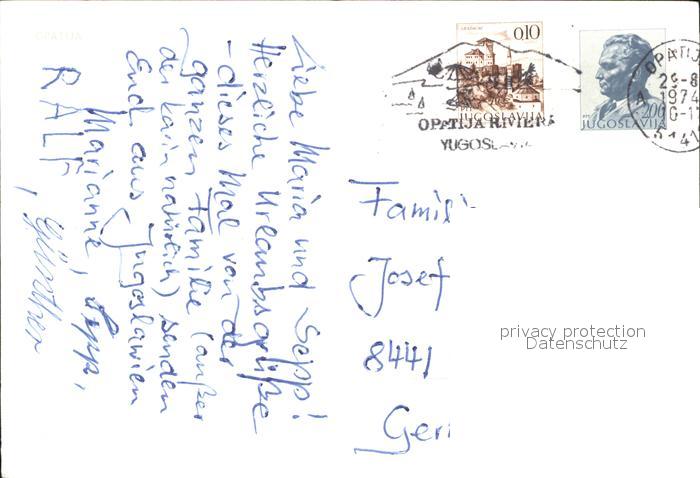 OPATIJA
Liebe Maria und Sepp!
Herzliche Urlaubsgrüße
- dieses Mal von der
ganzen Familie (außer
der Karin natürlich) senden
Euch aus Jugoslawien
Marianne, Sepp,
RALF, Günther
0,10
JUGOSLAVIJA
OPATIJA RIVIERA
YUGOSL
2,00
JUGOSLAVIJA
OPATIJ
1974
Famili
Josef
8441
Geri
privacy protection
Datenschutz